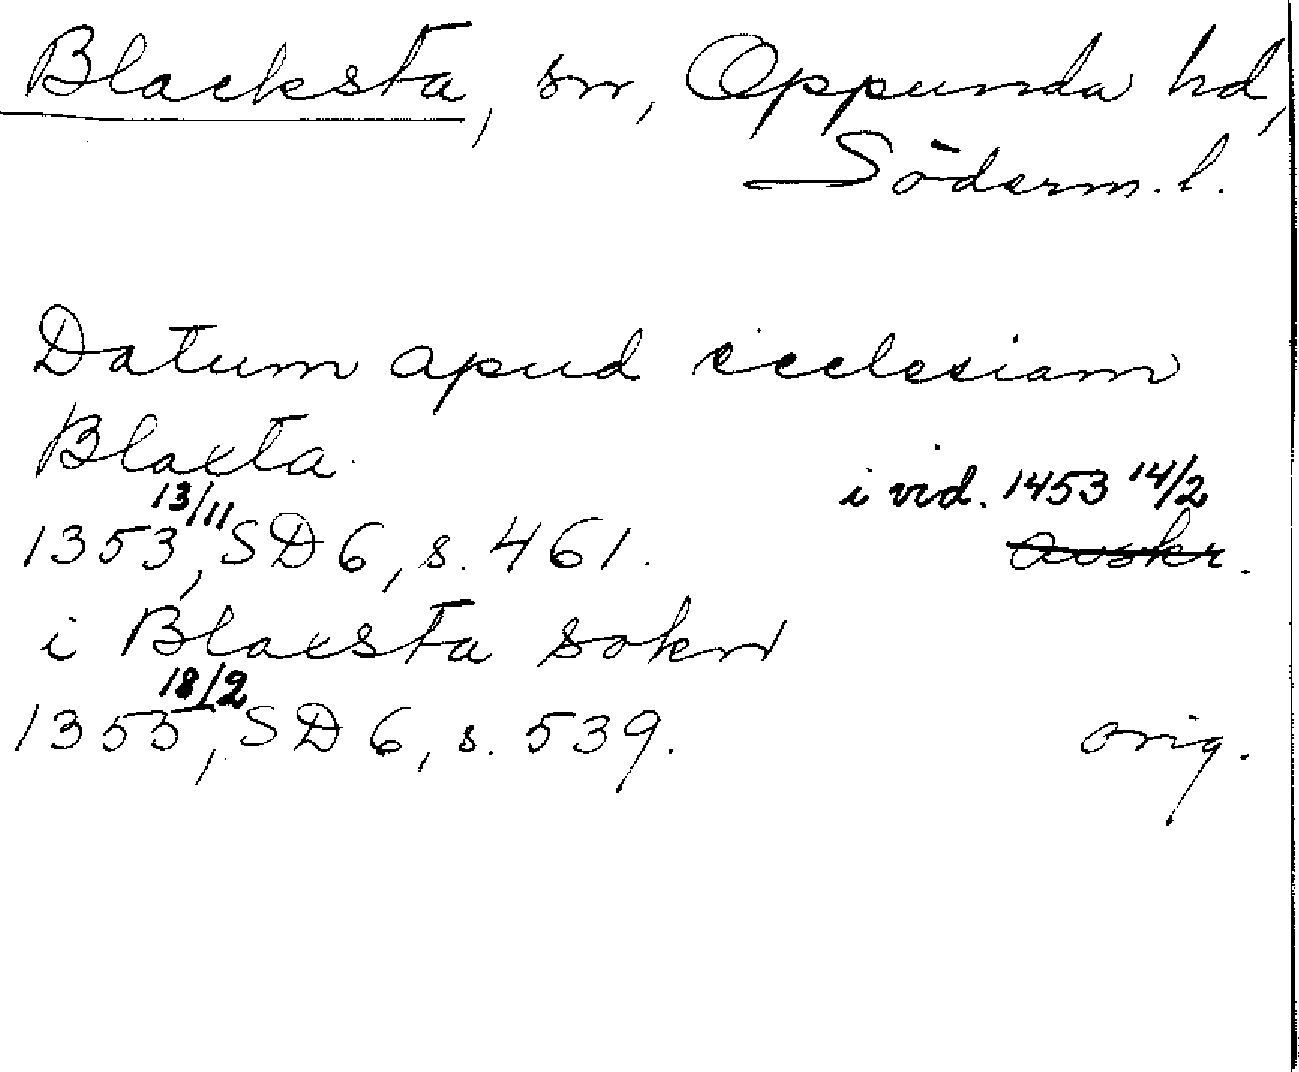 Blacksta, sn, Oppunda hd,
Söderm. l.
Datum apud ecclesiam
Blaxta.
i vid. 1453 14/2
1353 13/11, SD 6, s. 461. avskr.
i Blaxsta sokn
1355 18/2, SD 6, s. 539. orig.